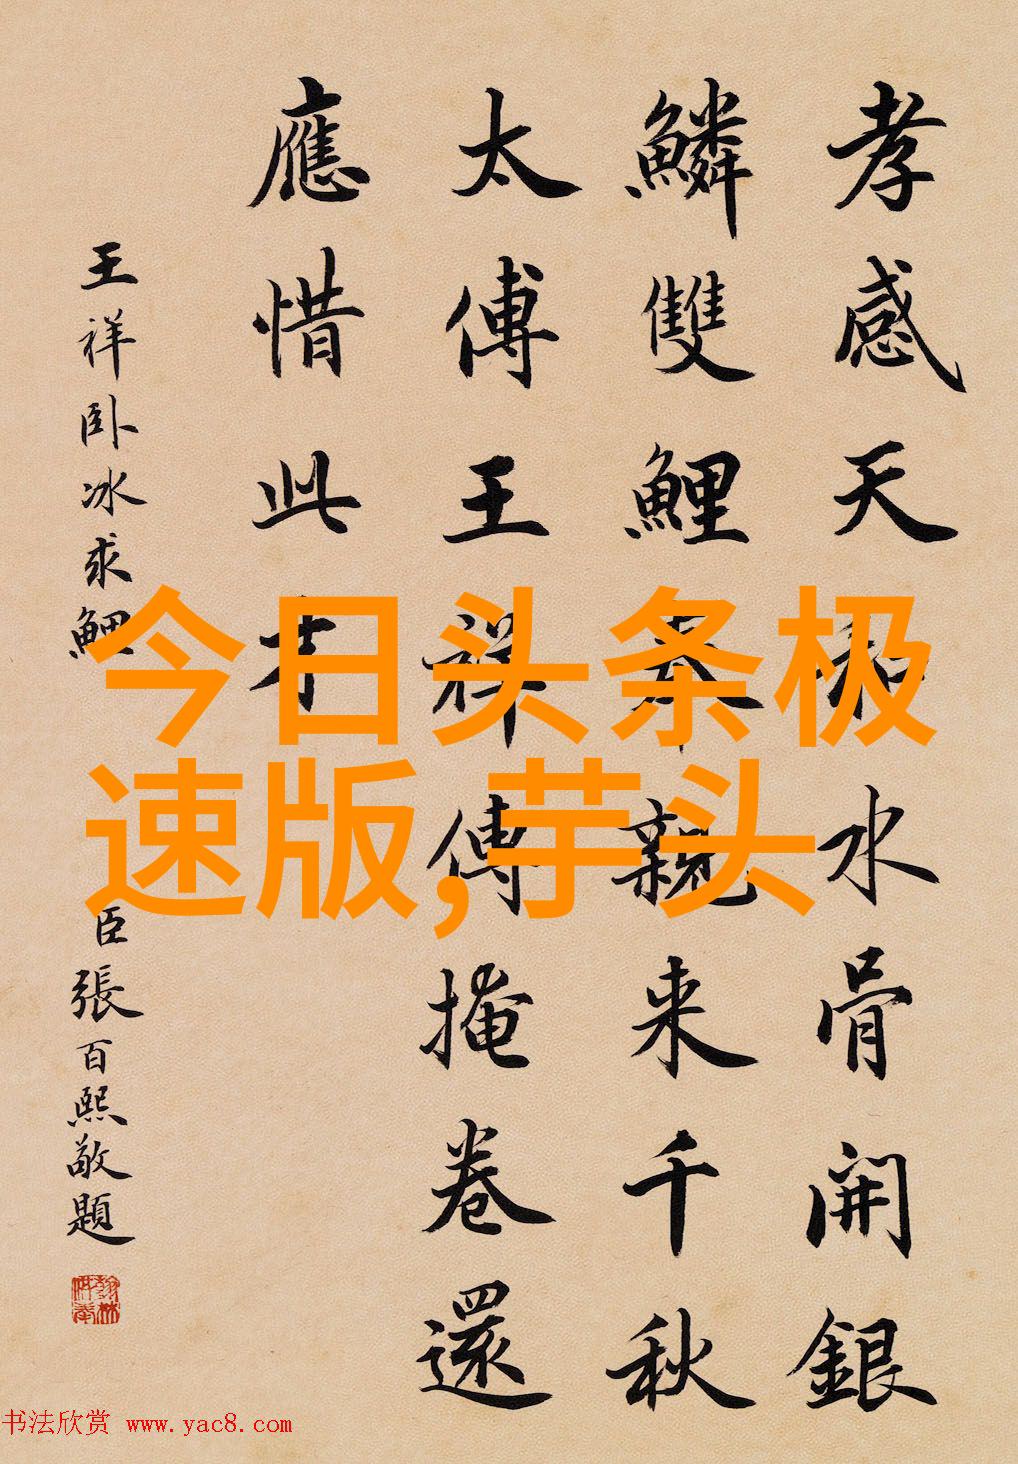 孝感天水骨開銀
鱗雙鯉奉親来千秋
太傅王祥傳掩卷還
應惜此才
王祥卧冰求鯉
臣張百熙敬題
今日头条极
速版,芋头
书法欣赏 www.yac8.com